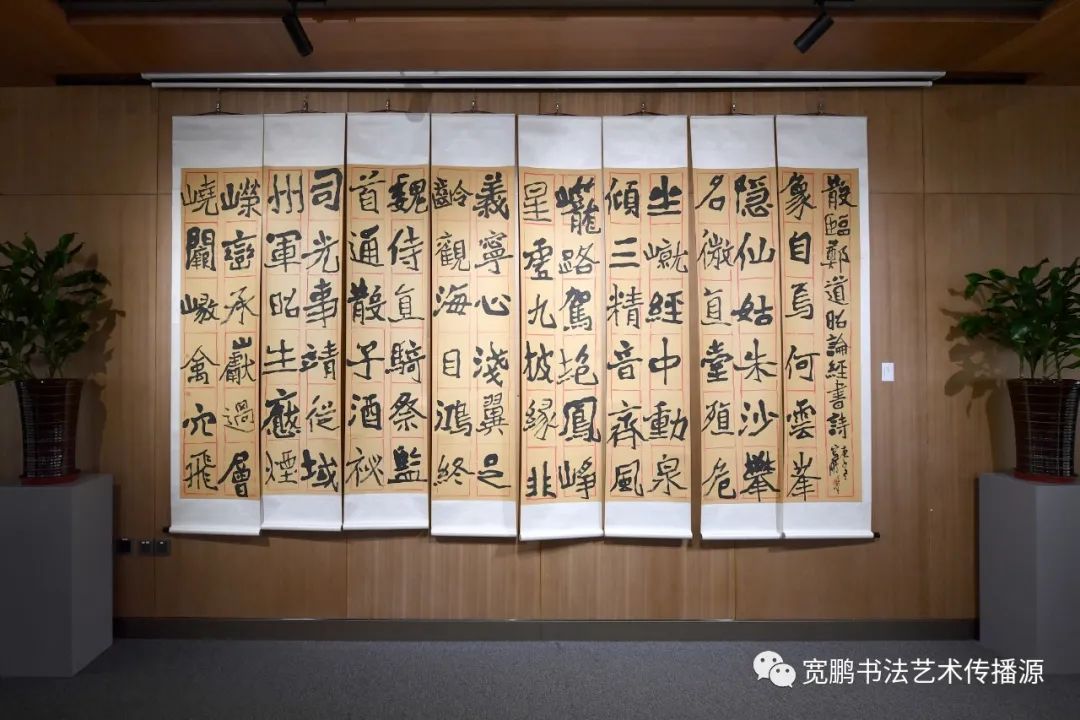 散臨鄭道昭論經書詩
象自烏何雲峯
隐仙姑朱沙攀
名微直堂殖危
坐巘經中動泉
傾三精音齊風
巃路駕垝鳳崢
星虛九披緣非
義寧心淺翼足
齡觀海目鴻終
魏侍直騎祭監
首通散子酒祕
司光事靖從域
州軍昭生煙
嶸巒承巘過層
嶢禽穴飛
宽鹏书法艺术传播源